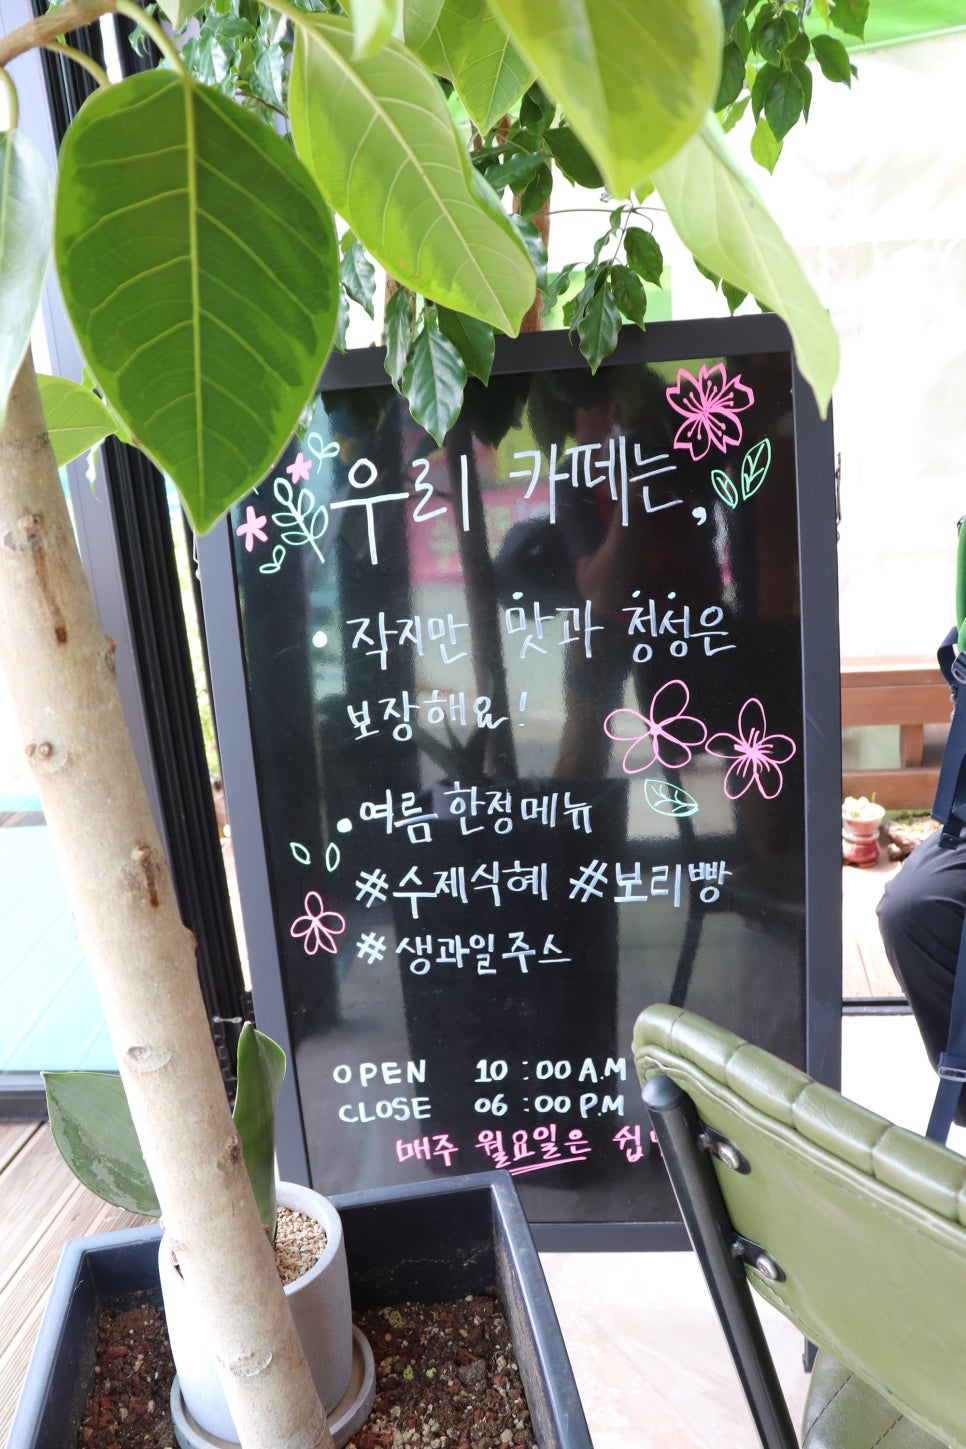 우리 카페는,
• 작지만 맛과 청성은
보장해요!
• 여름 한정메뉴
#수제식혜 #보리빵
#생과일주스
OPEN 10:00 A.M
CLOSE 06:00 P.M
매주 월요일은 쉽